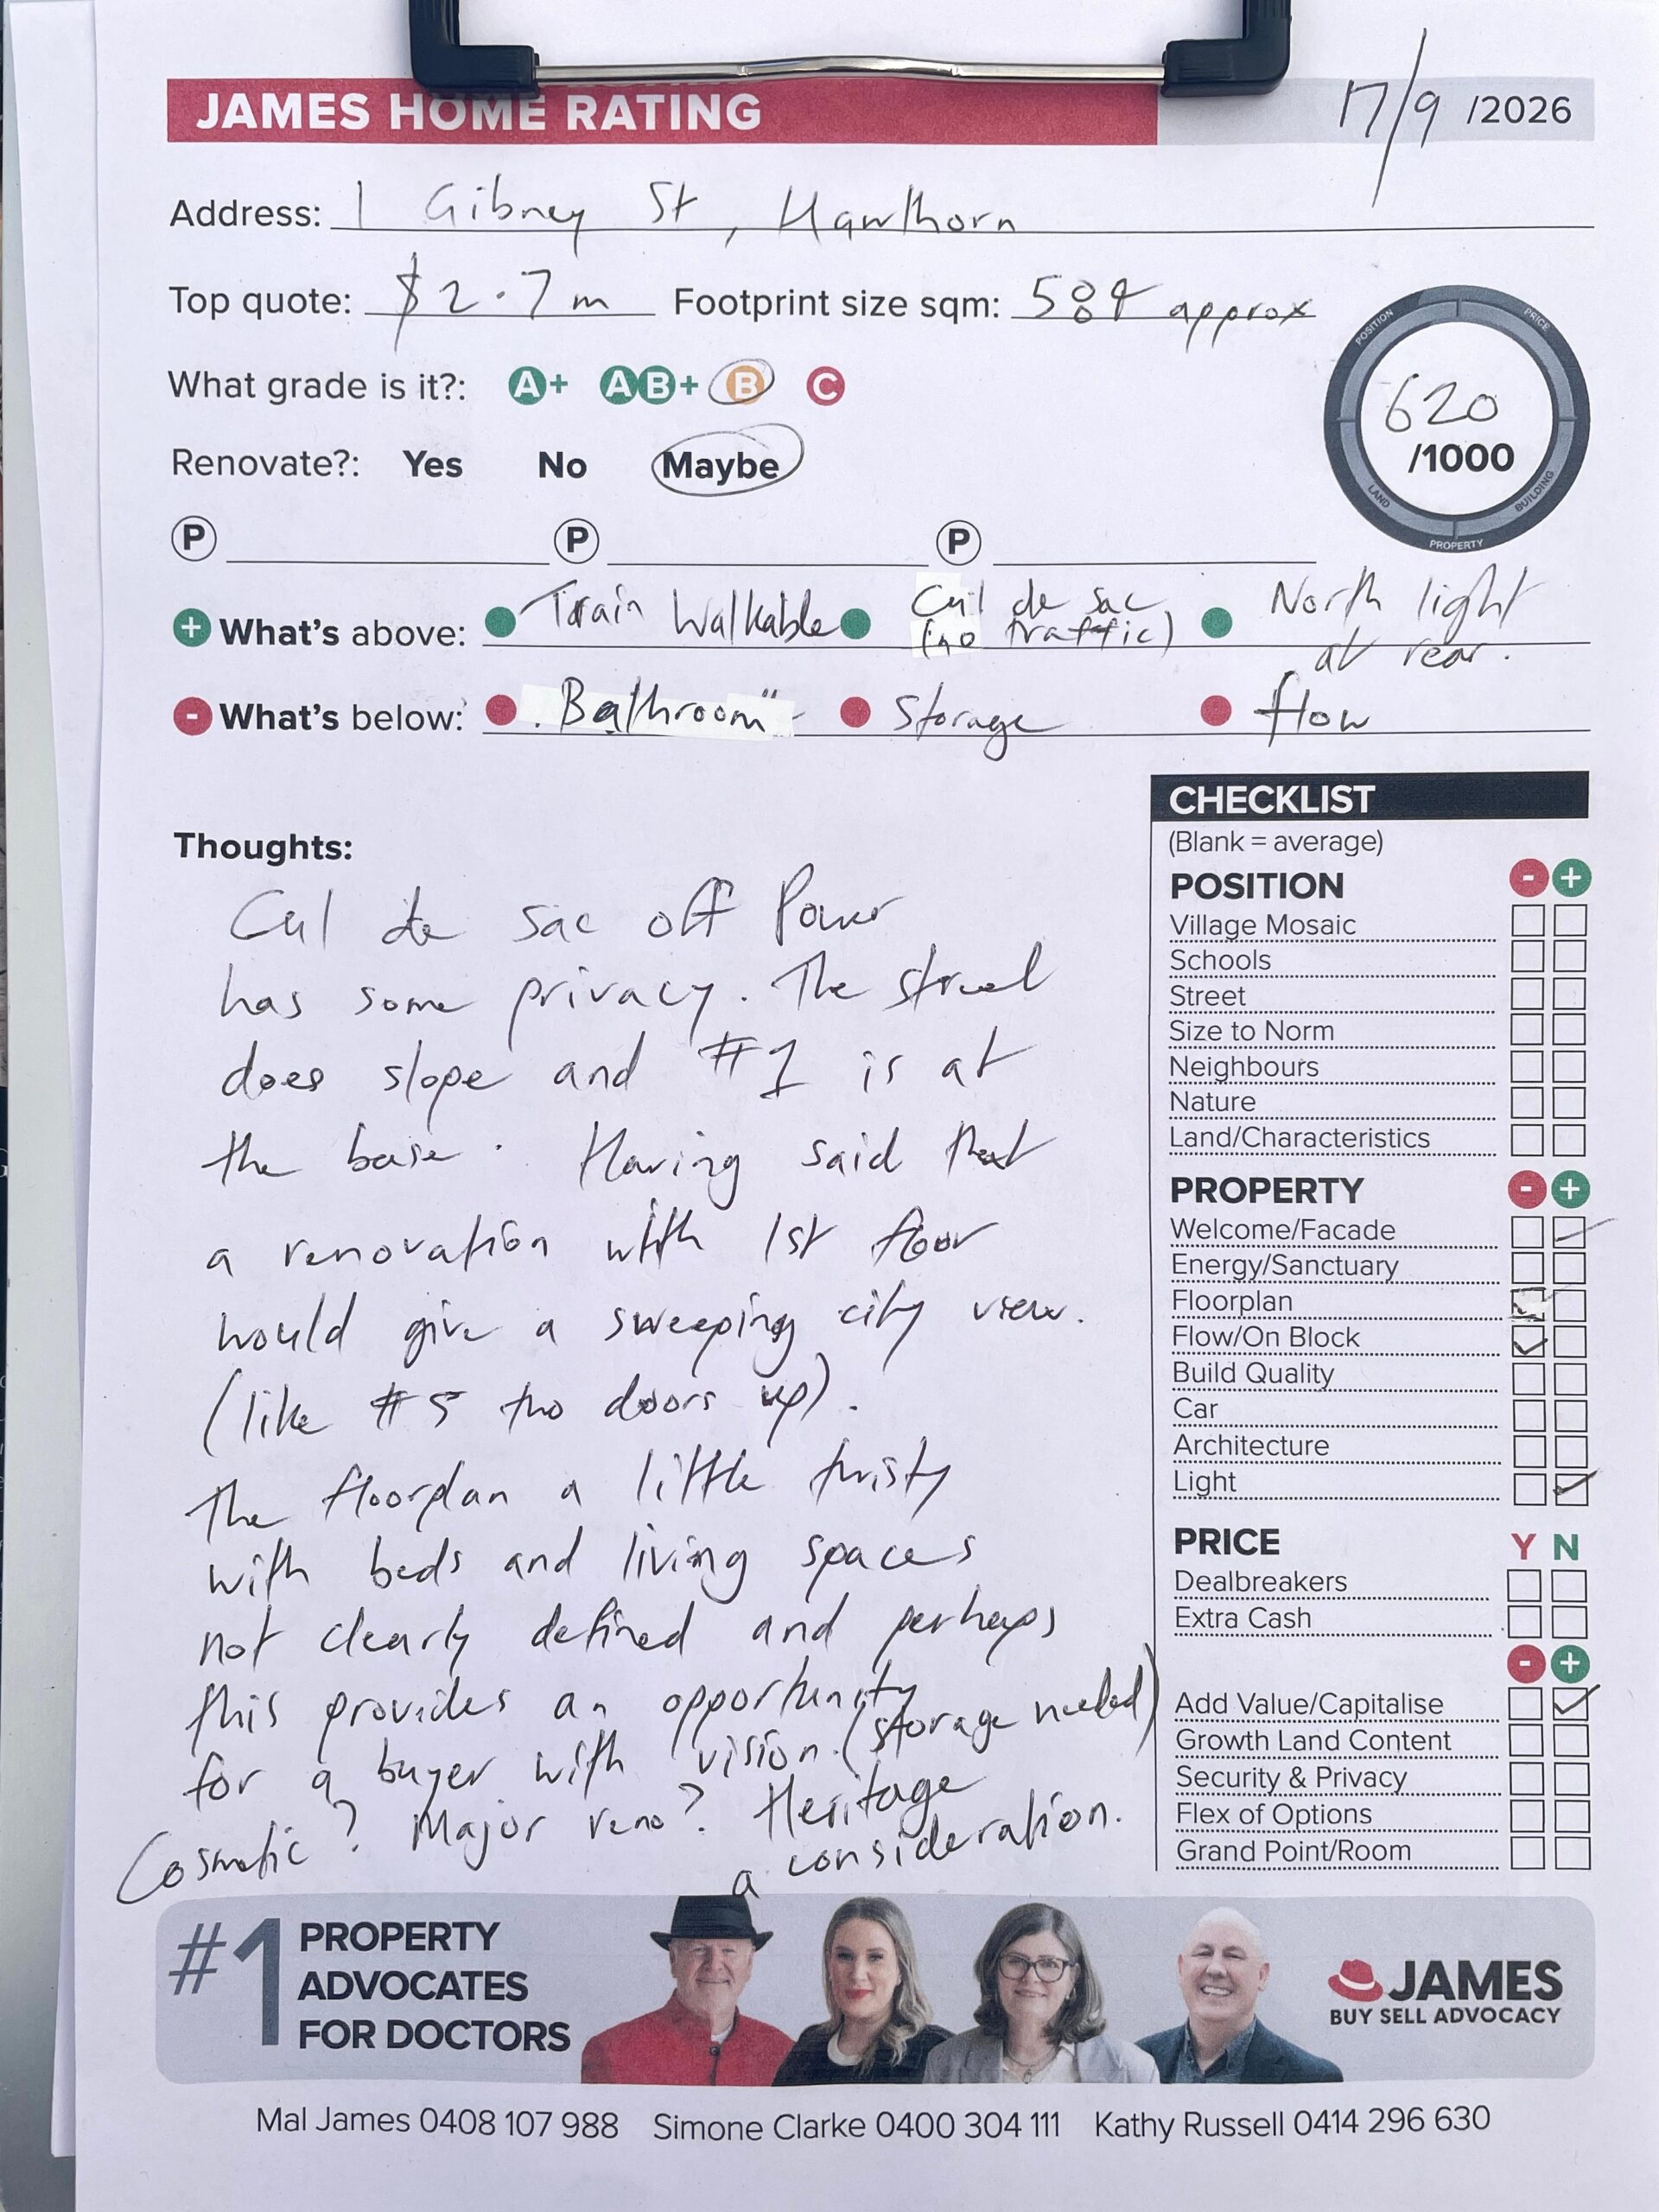 JAMES HOME RATING 17/9 /2026
Address: 1 Gibney St, Hawthorn
Top quote: $2.7m Footprint size sqm: 584 approx
POSITION PRICE LAND BUILDING PROPERTY
620
/1000
What grade is it?: A+ AB+ B C
Renovate?: Yes No Maybe
P P P
+ What's above: Train Walkable Cul de sac (no traffic) North light at rear.
- What's below: Bathroom Storage flow
Thoughts:
Cul de sac off Power
has some privacy. The street
does slope and #1 is at
the base. Having said that
a renovation with 1st floor
would give a sweeping city view.
(like #5 two doors up).
The floorplan a little twisty
with beds and living spaces
not clearly defined and perhaps
this provides an opportunity
for a buyer with vision. (storage needed)
Cosmetic? Major reno? Heritage
a consideration.
CHECKLIST
(Blank = average)
POSITION - +
Village Mosaic
Schools
Street
Size to Norm
Neighbours
Nature
Land/Characteristics
PROPERTY - +
Welcome/Facade
Energy/Sanctuary
Floorplan
Flow/On Block
Build Quality
Car
Architecture
Light
PRICE Y N
Dealbreakers
Extra Cash
- +
Add Value/Capitalise
Growth Land Content
Security & Privacy
Flex of Options
Grand Point/Room
#1 PROPERTY
ADVOCATES
FOR DOCTORS
JAMES
BUY SELL ADVOCACY
Mal James 0408 107 988 Simone Clarke 0400 304 111 Kathy Russell 0414 296 630